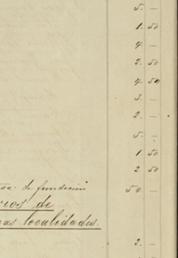 5. —
1. 50
4. —
2. 50
4. 50
3. —
2. —
5. —
1. 50
2. 50
de fundición 50. —
rios de
as localidades.
2. —